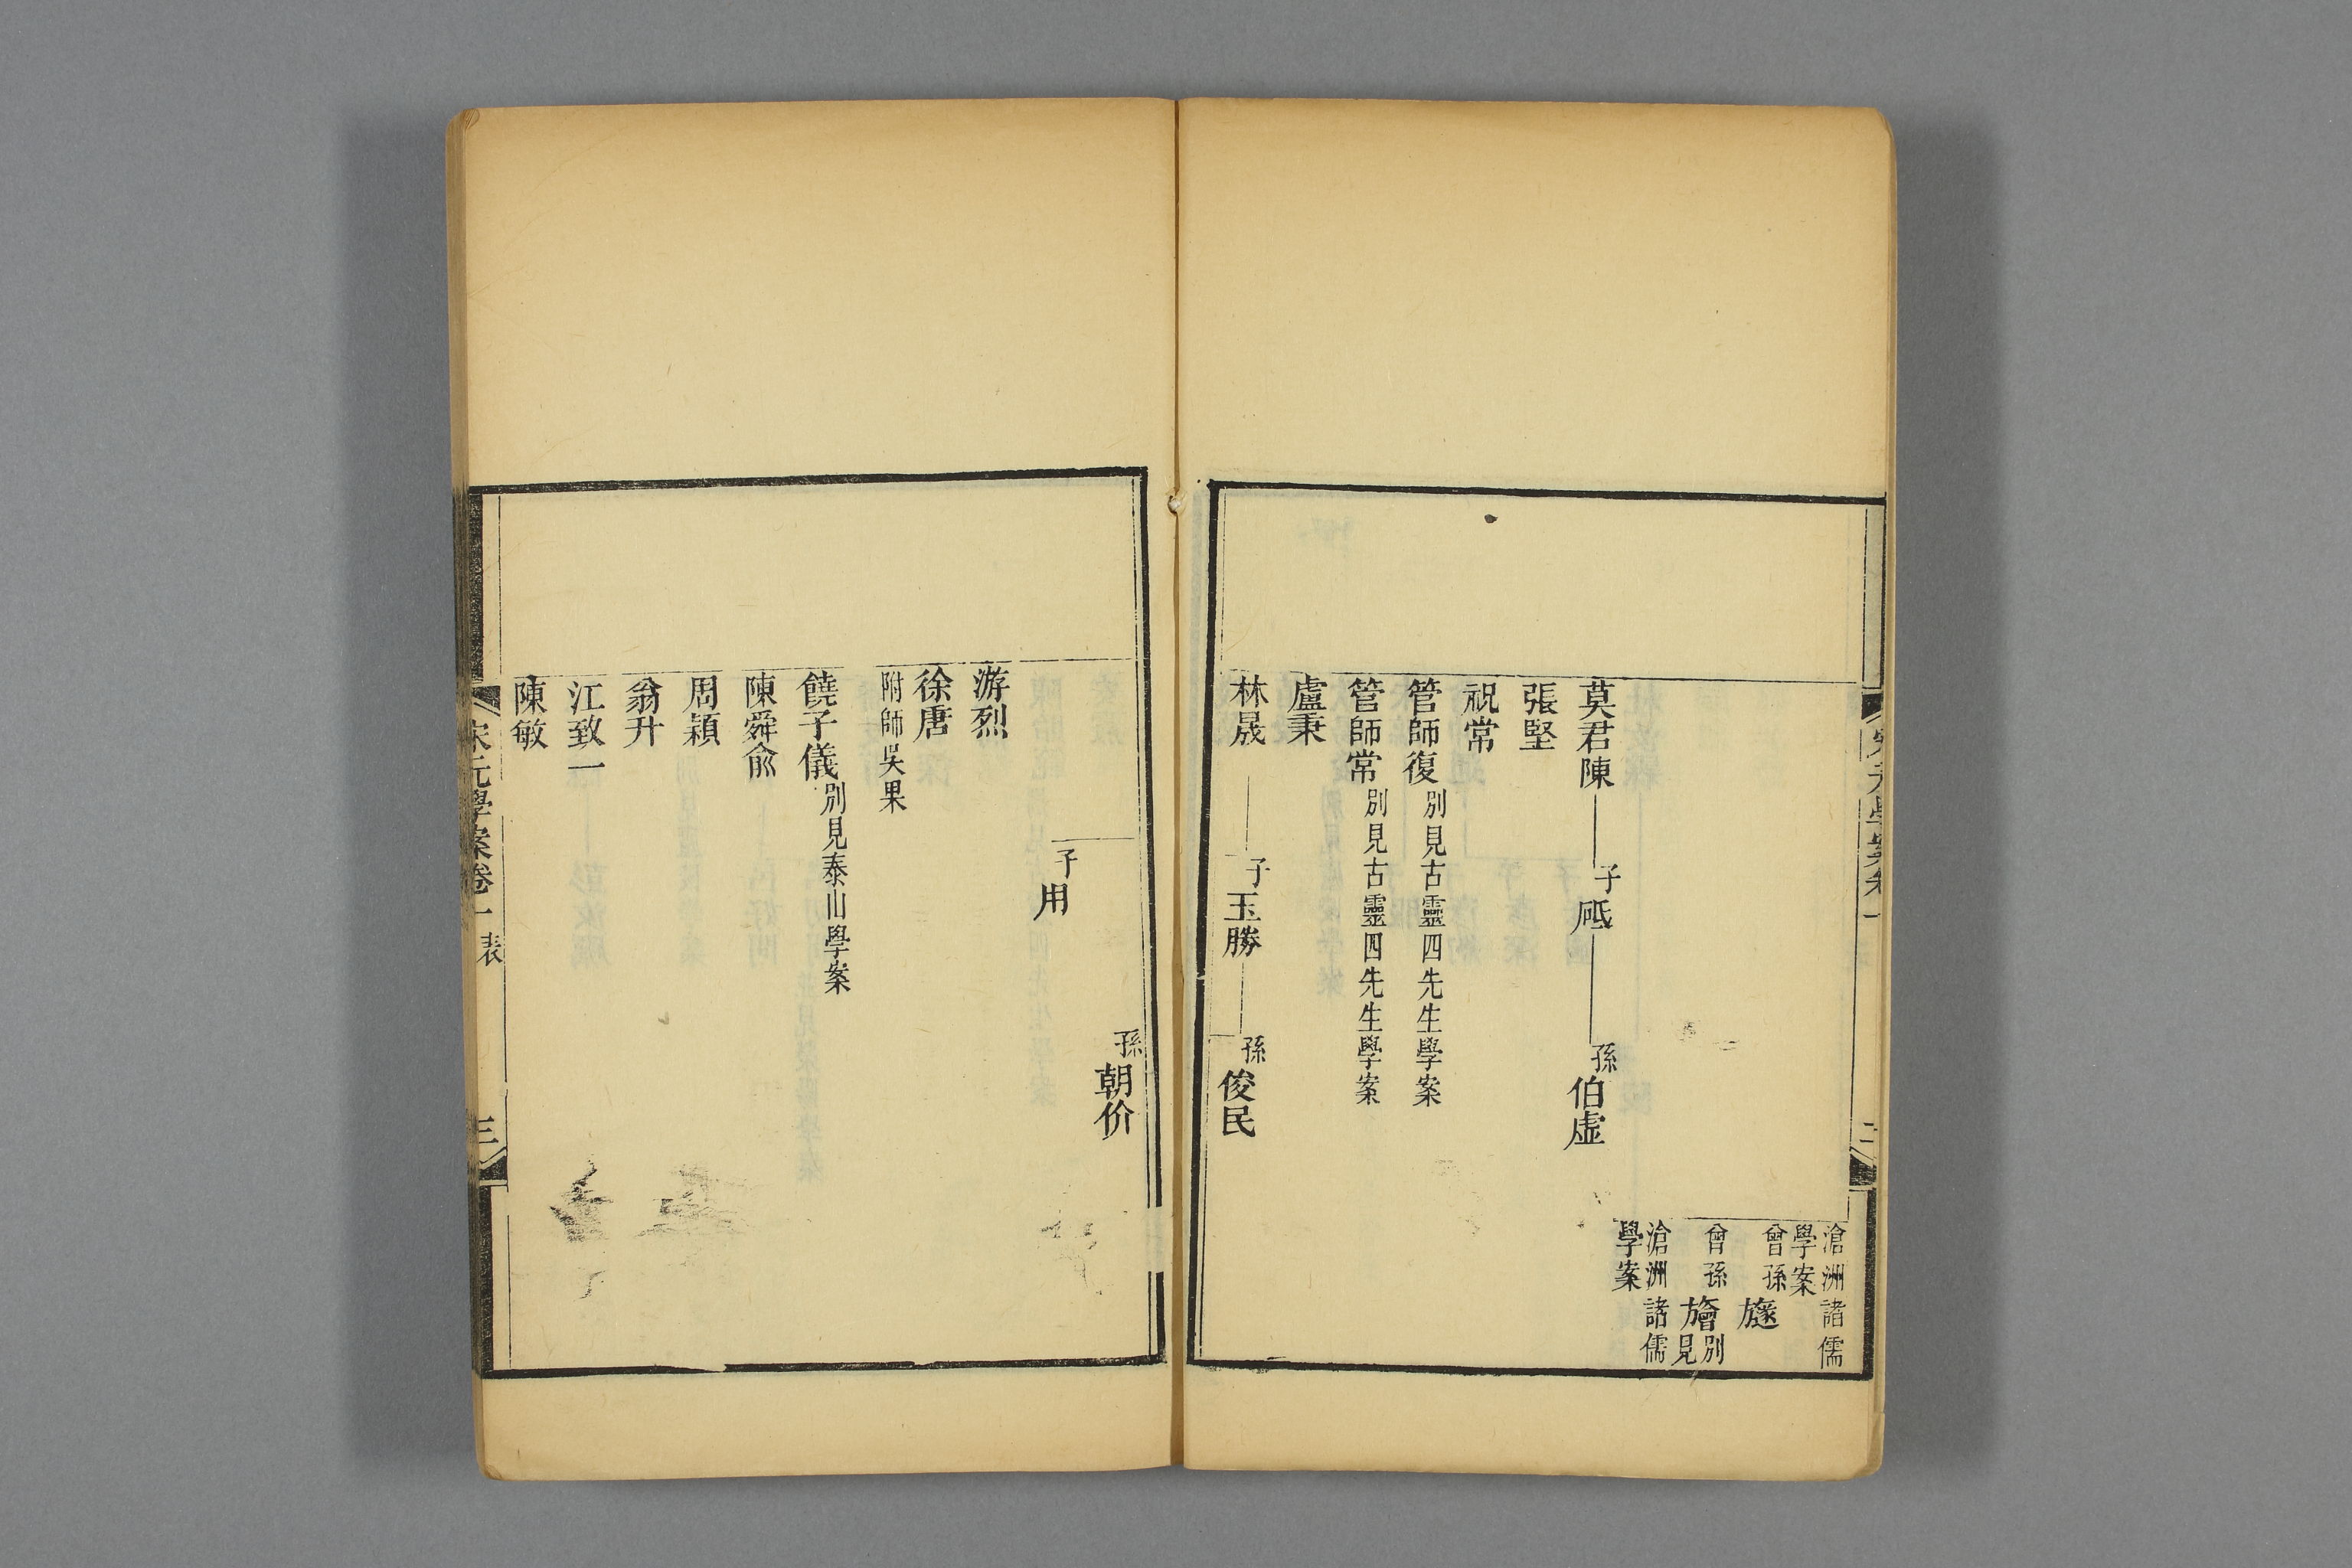 滄洲諸儒
學案
曾孫𣄚
曾孫旝別見
滄洲諸儒
學案
莫君陳 子砥 孫伯虛
張堅
祝常
管師復別見古靈四先生學案
管師常別見古靈四先生學案
盧秉
林晟 子玉勝 孫俊民
孫朝价
子用
游烈
徐唐
附師吳果
饒子儀別見泰山學案
陳舜俞
周穎
翁升
江致一
陳敏
宋元學案卷一 表 三